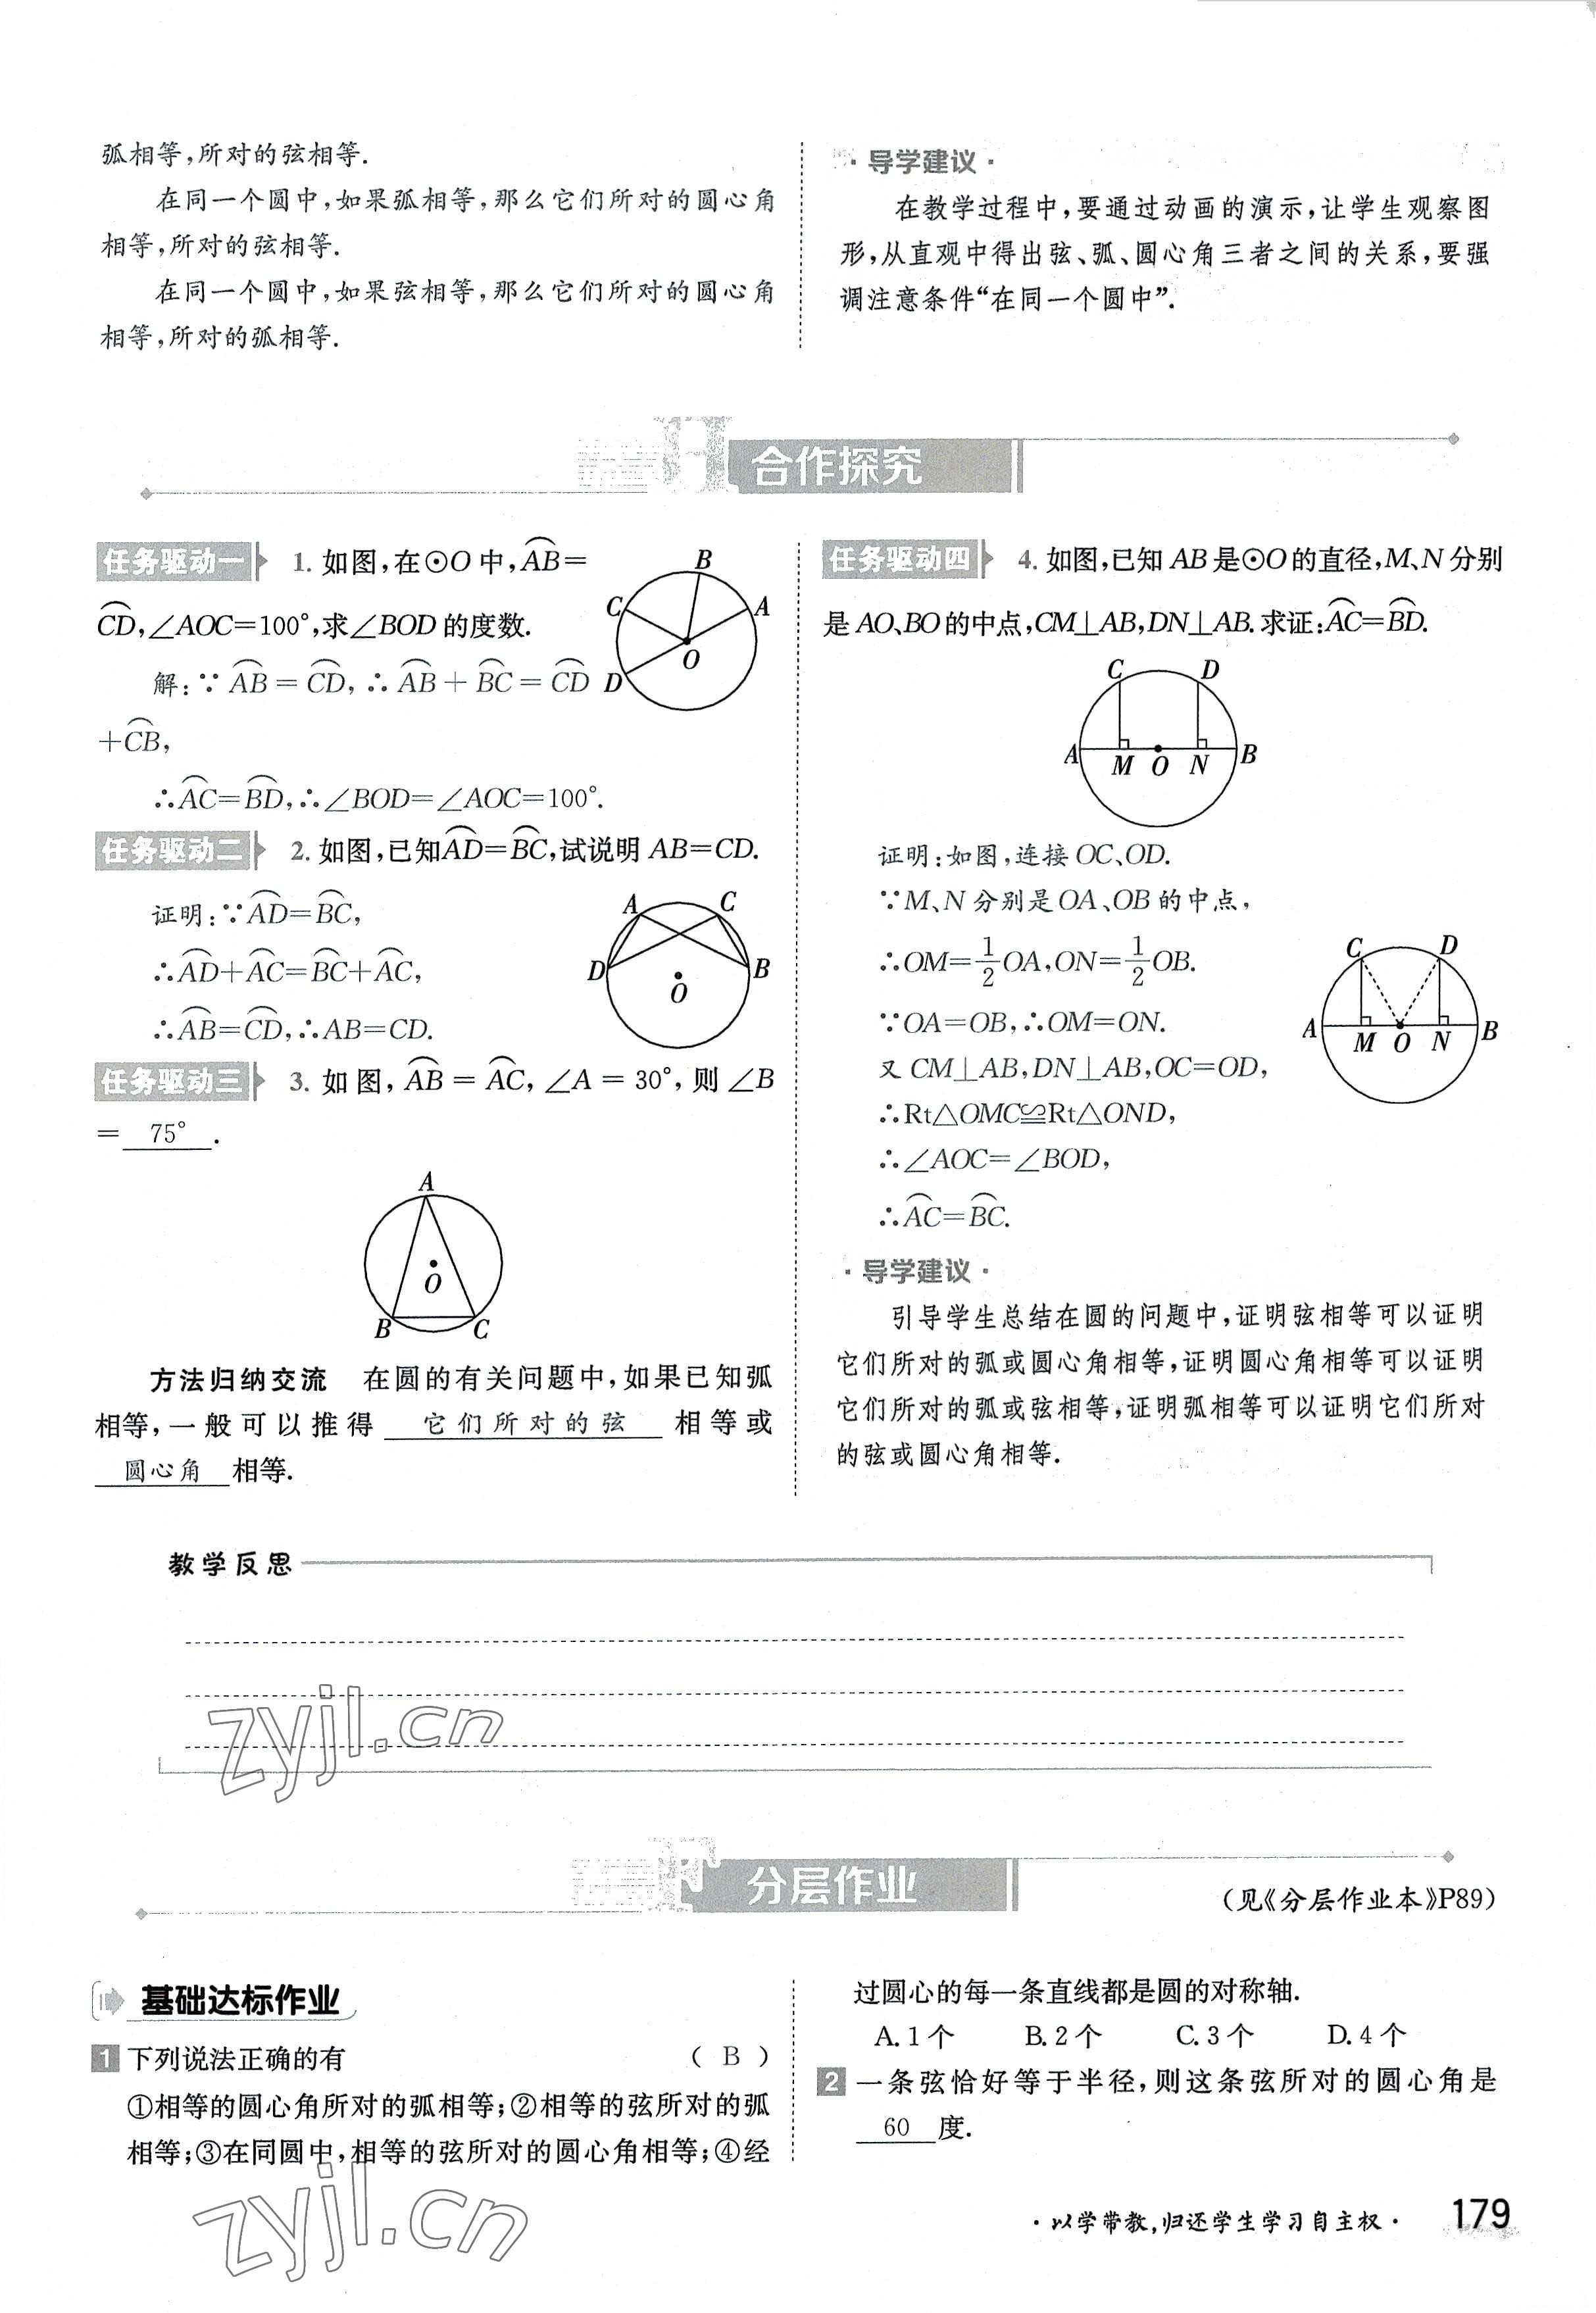 弧相等,所对的弦相等.
在同一个圆中,如果弧相等,那么它们所对的圆心角
相等,所对的弦相等.
在同一个圆中,如果弦相等,那么它们所对的圆心角
相等,所对的弧相等.
·导学建议·
在教学过程中,要通过动画的演示,让学生观察图
形,从直观中得出弦、弧、圆心角三者之间的关系,要强
调注意条件“在同一个圆中”.
合作探究
任务驱动一 1. 如图,在⊙O中,⌒AB=
⌒CD,∠AOC=100°,求∠BOD的度数.
解:∵⌒AB=⌒CD,∴⌒AB+⌒BC=⌒CD
+⌒CB,
∴⌒AC=⌒BD,∴∠BOD=∠AOC=100°.
B
C
A
O
D
任务驱动二 2. 如图,已知⌒AD=⌒BC,试说明AB=CD.
证明:∵⌒AD=⌒BC,
∴⌒AD+⌒AC=⌒BC+⌒AC,
∴⌒AB=⌒CD,∴AB=CD.
A
C
D
B
O
任务驱动三 3. 如图,⌒AB=⌒AC,∠A=30°,则∠B
= 75° .
A
O
B
C
方法归纳交流 在圆的有关问题中,如果已知弧
相等,一般可以推得 它们所对的弦 相等或
圆心角 相等.
任务驱动四 4. 如图,已知AB是⊙O的直径,M、N分别
是AO、BO的中点,CM⊥AB,DN⊥AB.求证:⌒AC=⌒BD.
C
D
A
M
O
N
B
证明:如图,连接OC、OD.
∵M、N分别是OA、OB的中点,
∴OM=1/2OA,ON=1/2OB.
∵OA=OB,∴OM=ON.
又CM⊥AB,DN⊥AB,OC=OD,
∴Rt△OMC≌Rt△OND,
∴∠AOC=∠BOD,
∴⌒AC=⌒BC.
C
D
A
M
O
N
B
·导学建议·
引导学生总结在圆的问题中,证明弦相等可以证明
它们所对的弧或圆心角相等,证明圆心角相等可以证明
它们所对的弧或弦相等,证明弧相等可以证明它们所对
的弦或圆心角相等.
教学反思
zyjl.cn
分层作业
(见《分层作业本》P89)
基础达标作业
1 下列说法正确的有 ( B )
①相等的圆心角所对的弧相等;②相等的弦所对的弧
相等;③在同圆中,相等的弦所对的圆心角相等;④经
过圆心的每一条直线都是圆的对称轴.
A.1个 B.2个 C.3个 D.4个
2 一条弦恰好等于半径,则这条弦所对的圆心角是
60 度.
zyjl.cn
·以学带教,归还学生学习自主权· 179